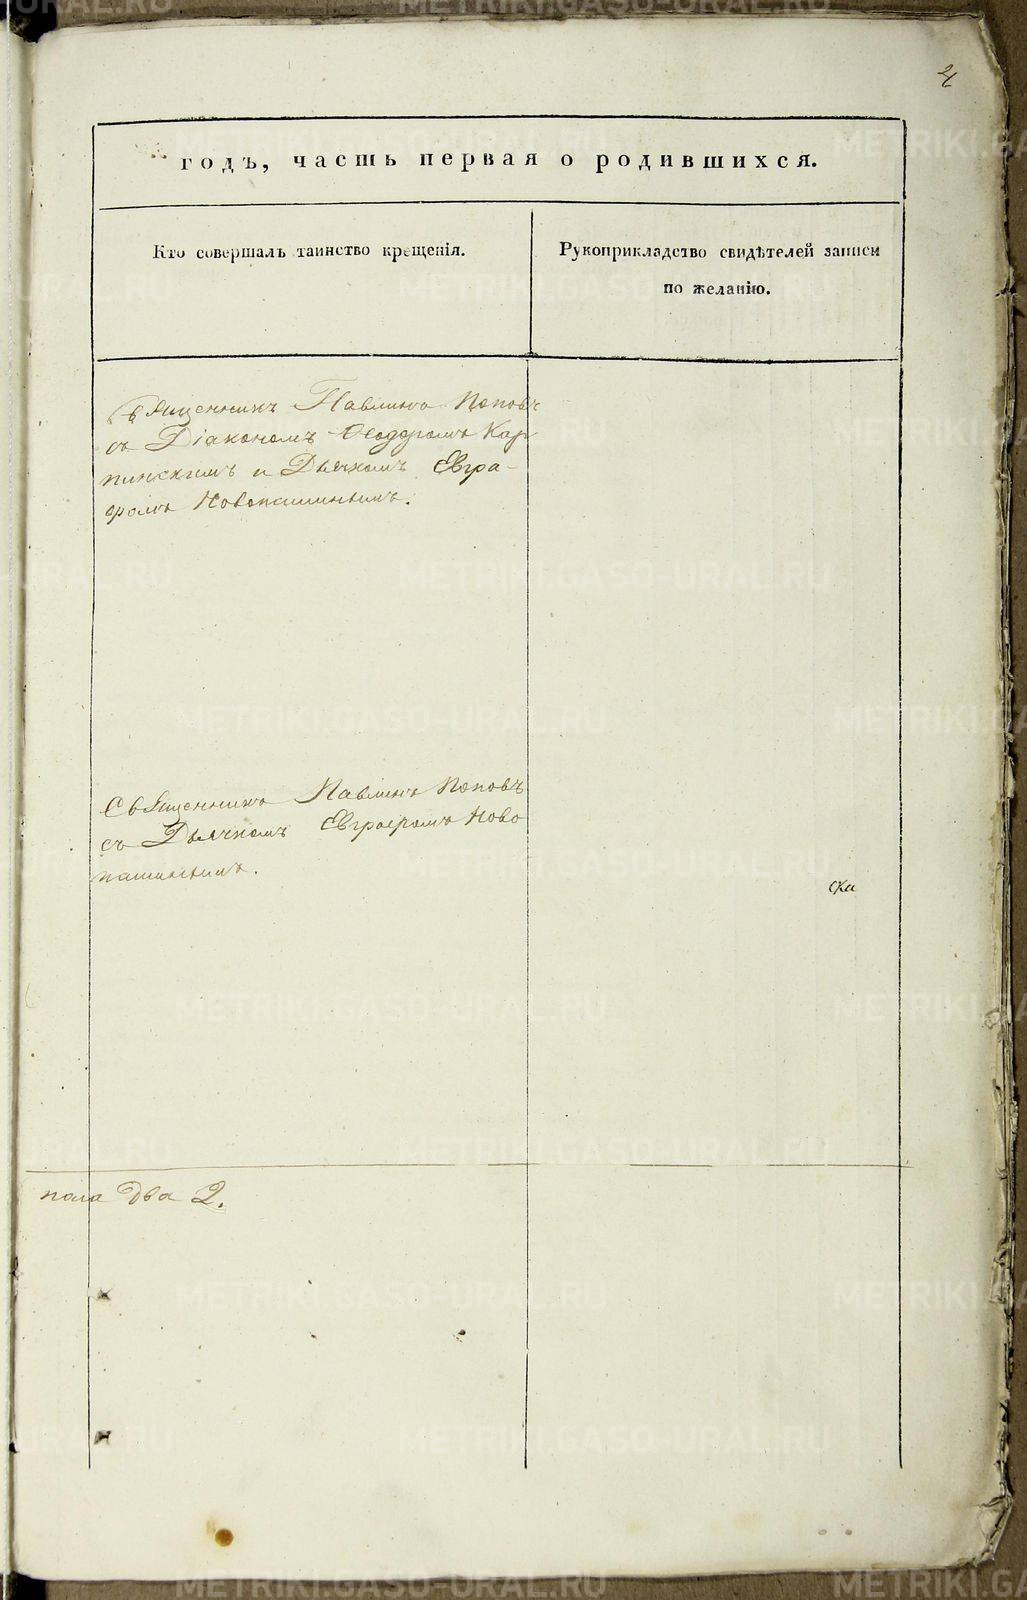 2
годъ, часть первая о родившихся.
Кто совершалъ таинство крещенія.
Рукоприкладство свидѣтелей записи
по желанію.
Священникъ Павлинъ Поповъ
съ Діакономъ Ѳеодоромъ Кар
пинскимъ и Дьячкомъ Евгра-
фомъ Новопашинымъ.
Священникъ Павлинъ Поповъ
съ Дьячкомъ Евграфомъ Ново
пашинымъ.
ска
пола два 2.
METRIKI.GASO-URAL.RU